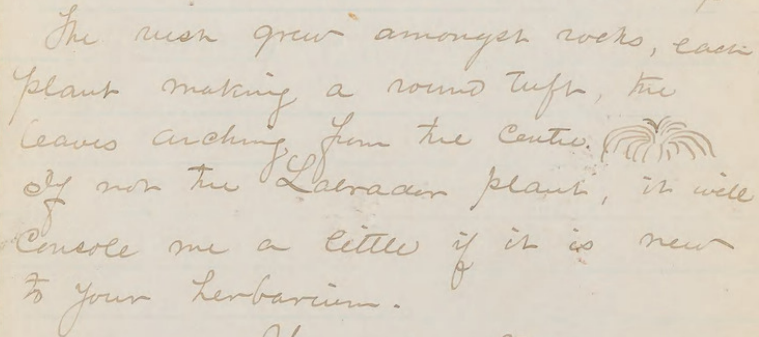 The rush grew amongst rocks, each
plant making a round tuft, the
leaves arching from the centre.
If not the Labrador plant, it will
console me a little if it is new
to your herbarium.